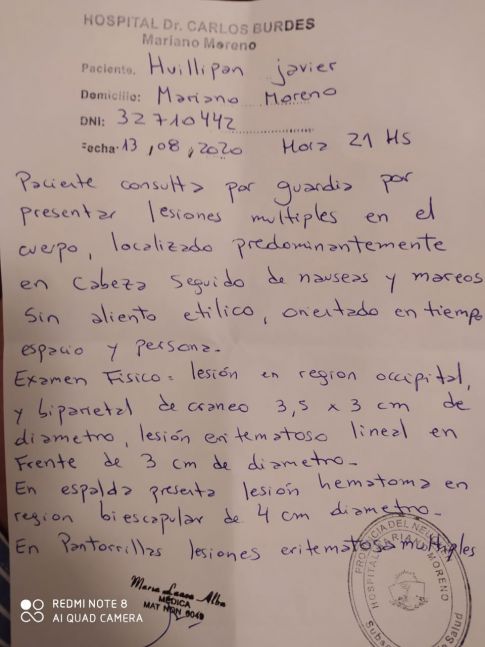 HOSPITAL Dr. CARLOS BURDES
Mariano Moreno
Paciente. Huillipan javier
Domicilio: Mariano Moreno
DNI: 32710442
Fecha 13, 08, 2020 Hora 21 HS
Paciente consulta por guardia por
presentar lesiones multiples en el
cuerpo, localizado predominantemente
en cabeza seguido de nauseas y mareos
Sin aliento etilico, orientado en tiempo
espacio y persona.
Examen Fisico = lesión en region occipital,
y biparietal de craneo 3,5 x 3 cm de
diametro, lesión eritematoso lineal en
Frente de 3 cm de diametro-
En espalda presenta lesión hematoma en
region biescapular de 4 cm diametro-
En Pantorrillas lesiones eritematosa multiples
Maria Laura Alba
MEDICA
PROVINCIA DEL
HOSPITAL MARIANO MORENO
Salud
REDMI NOTE 8
AI QUAD CAMERA